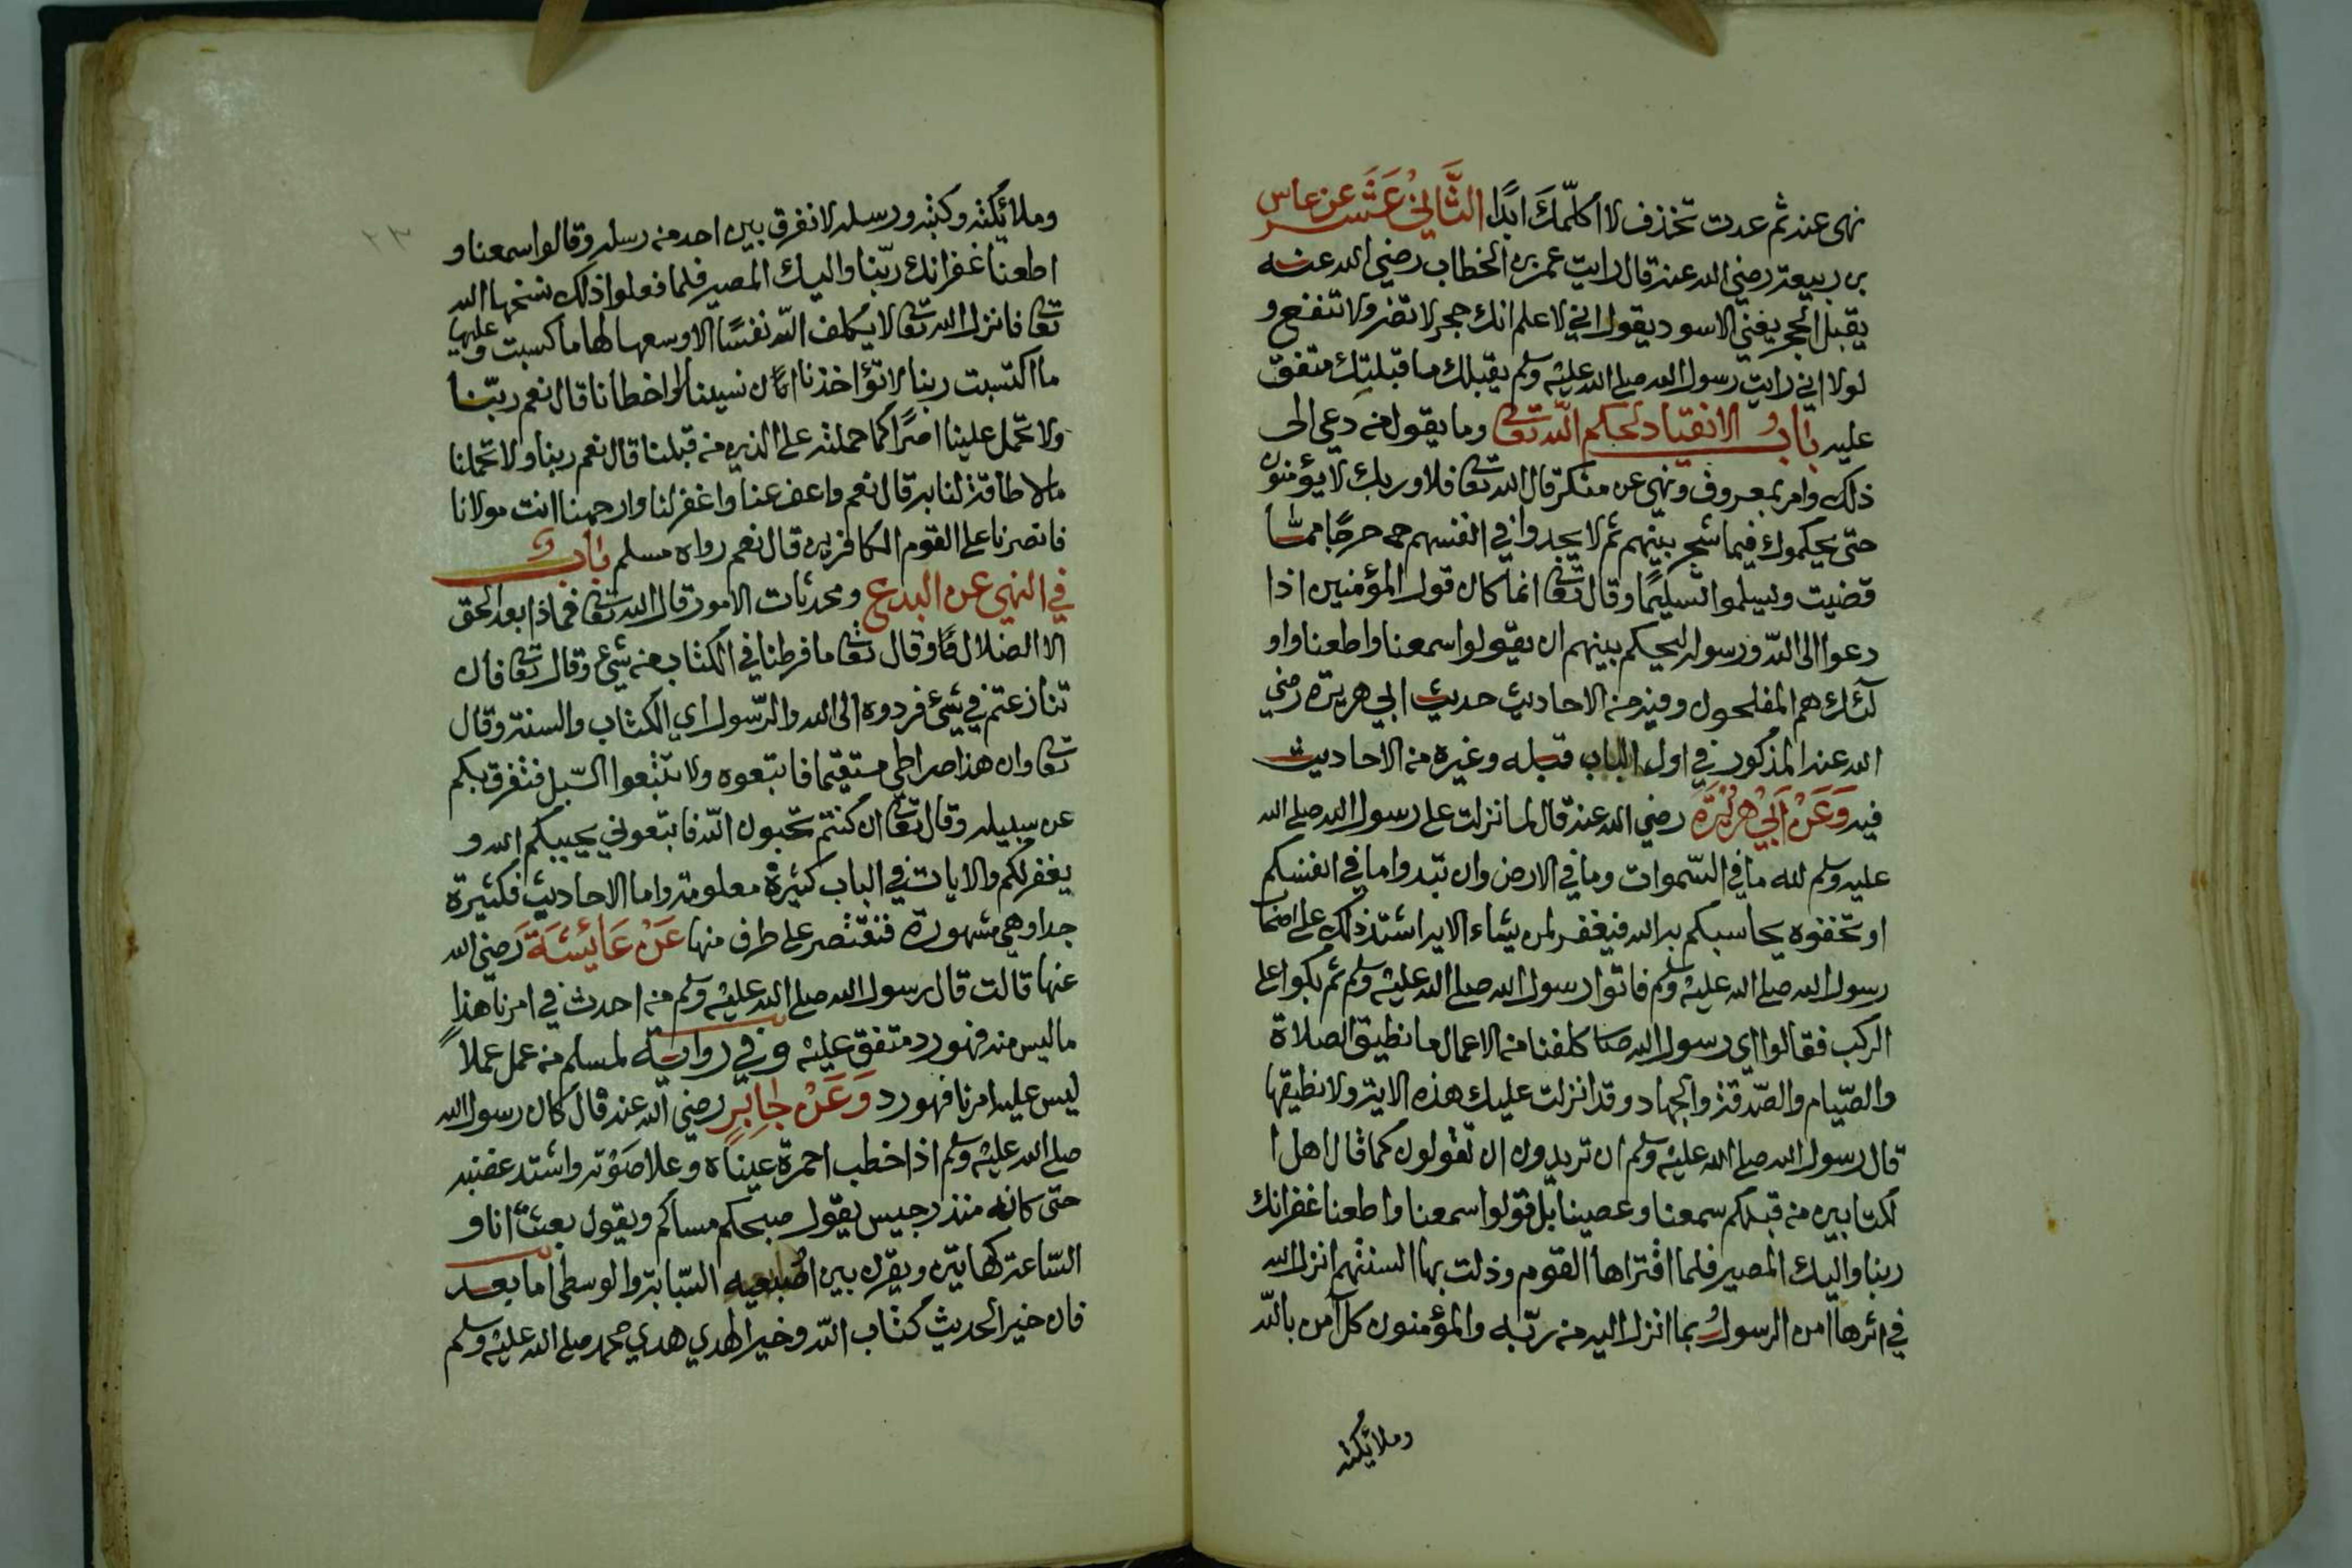 نهى عنه ثم عدت تخذف لا اكلّمك ابدًا الثَّانِيْ عَشَر عن عابس
بن ربيعة رضي الله عنه قال رايت عمر بن الخطاب رضي الله عنه
يقبل الحجر يعني الاسود يقول اني لاعلم انك حجر لا تضر ولا تنفع و
لولا اني رايت رسول الله صلى الله عليه وسلم يقبلك ما قبلتك متفق
عليه باب و الانقياد لحكم الله تعا وما يقول من دعي الى
ذلك وامر بمعروف ونهي عن منكر قال الله تعا فلا وربك لا يؤمنون
حتى يحكموك فيما شجر بينهم ثم لا يجدوا في انفسهم حرجًا مما
قضيت ويسلموا تسليمًا وقال تعا انما كان قول المؤمنين اذا
دعوا الى الله ورسوله ليحكم بينهم ان يقولوا سمعنا واطعنا واو
لئك هم المفلحون وفيه من الاحاديث حديث ابي هريرة رضي
الله عنه المذكور في اول الباب قبله وغيره من الاحاديث
فيه وَعَنْ اَبِيْ هُرَيْرَةَ رضي الله عنه قال لما نزلت على رسول الله صلى الله
عليه وسلم لله ما في السّموات وما في الارض وان تبدوا ما في انفسكم
او تخفوه يحاسبكم به الله فيغفر لمن يشاء الاية اشتد ذلك على اصحاب
رسول الله صلى الله عليه وسلم فاتوا رسول الله صلى الله عليه وسلم ثم بكوا على
الركب فقالوا اي رسول الله كلفنا من الاعمال ما نطيق الصلاة
والصّيام والصّدقة والجهاد وقد انزلت عليك هذه الاية ولا نطيقها
قال رسول الله صلى الله عليه وسلم ان تريدون ان تقولون كما قال اهل ا
لكتابين من قبلكم سمعنا وعصينا بل قولوا سمعنا واطعنا غفرانك
ربنا واليك المصير فلما اقتراها القوم وذلت بها السنتهم انزل الله
في اثرها امن الرسول بما انزل اليه من ربّه والمؤمنون كل آمن بالله
وملائكته
٢٣
وملائكته وكتبه ورسله لا نفرق بين احد من رسله وقالوا سمعنا و
اطعنا غفرانك ربّنا واليك المصير فلما فعلوا ذلك نسخها الله
تعا فانزل الله تعا لا يكلف الله نفسًا الا وسعها لها ما كسبت وعليها
ما اكتسبت ربنا لا تؤاخذنا ان نسينا او اخطأنا قال نعم ربّنا
ولا تحمل علينا اصرًا كما حملته على الذين من قبلنا قال نعم ربنا ولا تحملنا
مالا طاقة لنا به قال نعم واعف عنا واغفر لنا وارحمنا انت مولانا
فانصرنا على القوم الكافرين قال نعم رواه مسلم باب و
في النهي عن البدع ومحدثات الامور قال الله تعا فماذا بعد الحق
الا الضلال وقال تعا ما فرطنا في الكتاب من شيء وقال تعا فان
تنازعتم في شيء فردوه الى الله والرّسول اي الكتاب والسنة وقال
تعا وان هذا صراطي مستقيما فاتبعوه ولا تتبعوا السّبل فتفرق بكم
عن سبيله وقال تعا ان كنتم تحبون الله فاتبعوني يحببكم الله و
يغفر لكم والايات في الباب كثيرة معلومة واما الاحاديث فكثيرة
جدا وهي مشهورة فنقتصر على طرف منها عَنْ عَائِشَةَ رَضي الله
عنها قالت قال رسول الله صلى الله عليه وسلم من احدث في امرنا هذا
ما ليس منه فهو رد متفق عليه و في رواية لمسلم من عمل عملاً
ليس عليه امرنا فهو رد وَعَنْ جَابِرٍ رضي الله عنه قال كان رسول الله
صلى الله عليه وسلم اذا خطب احمرة عيناه وعلا صَوْته واشتد غضبه
حتى كانه منذر جيس يقول صبحكم مساكم ويقول بعثت انا و
السّاعة كهاتين ويقرن بين اصبعيه السّبابة والوسطى اما بعد
فان خير الحديث كتاب الله وخير الهدي هدي محمد صلى الله عليه وسلم